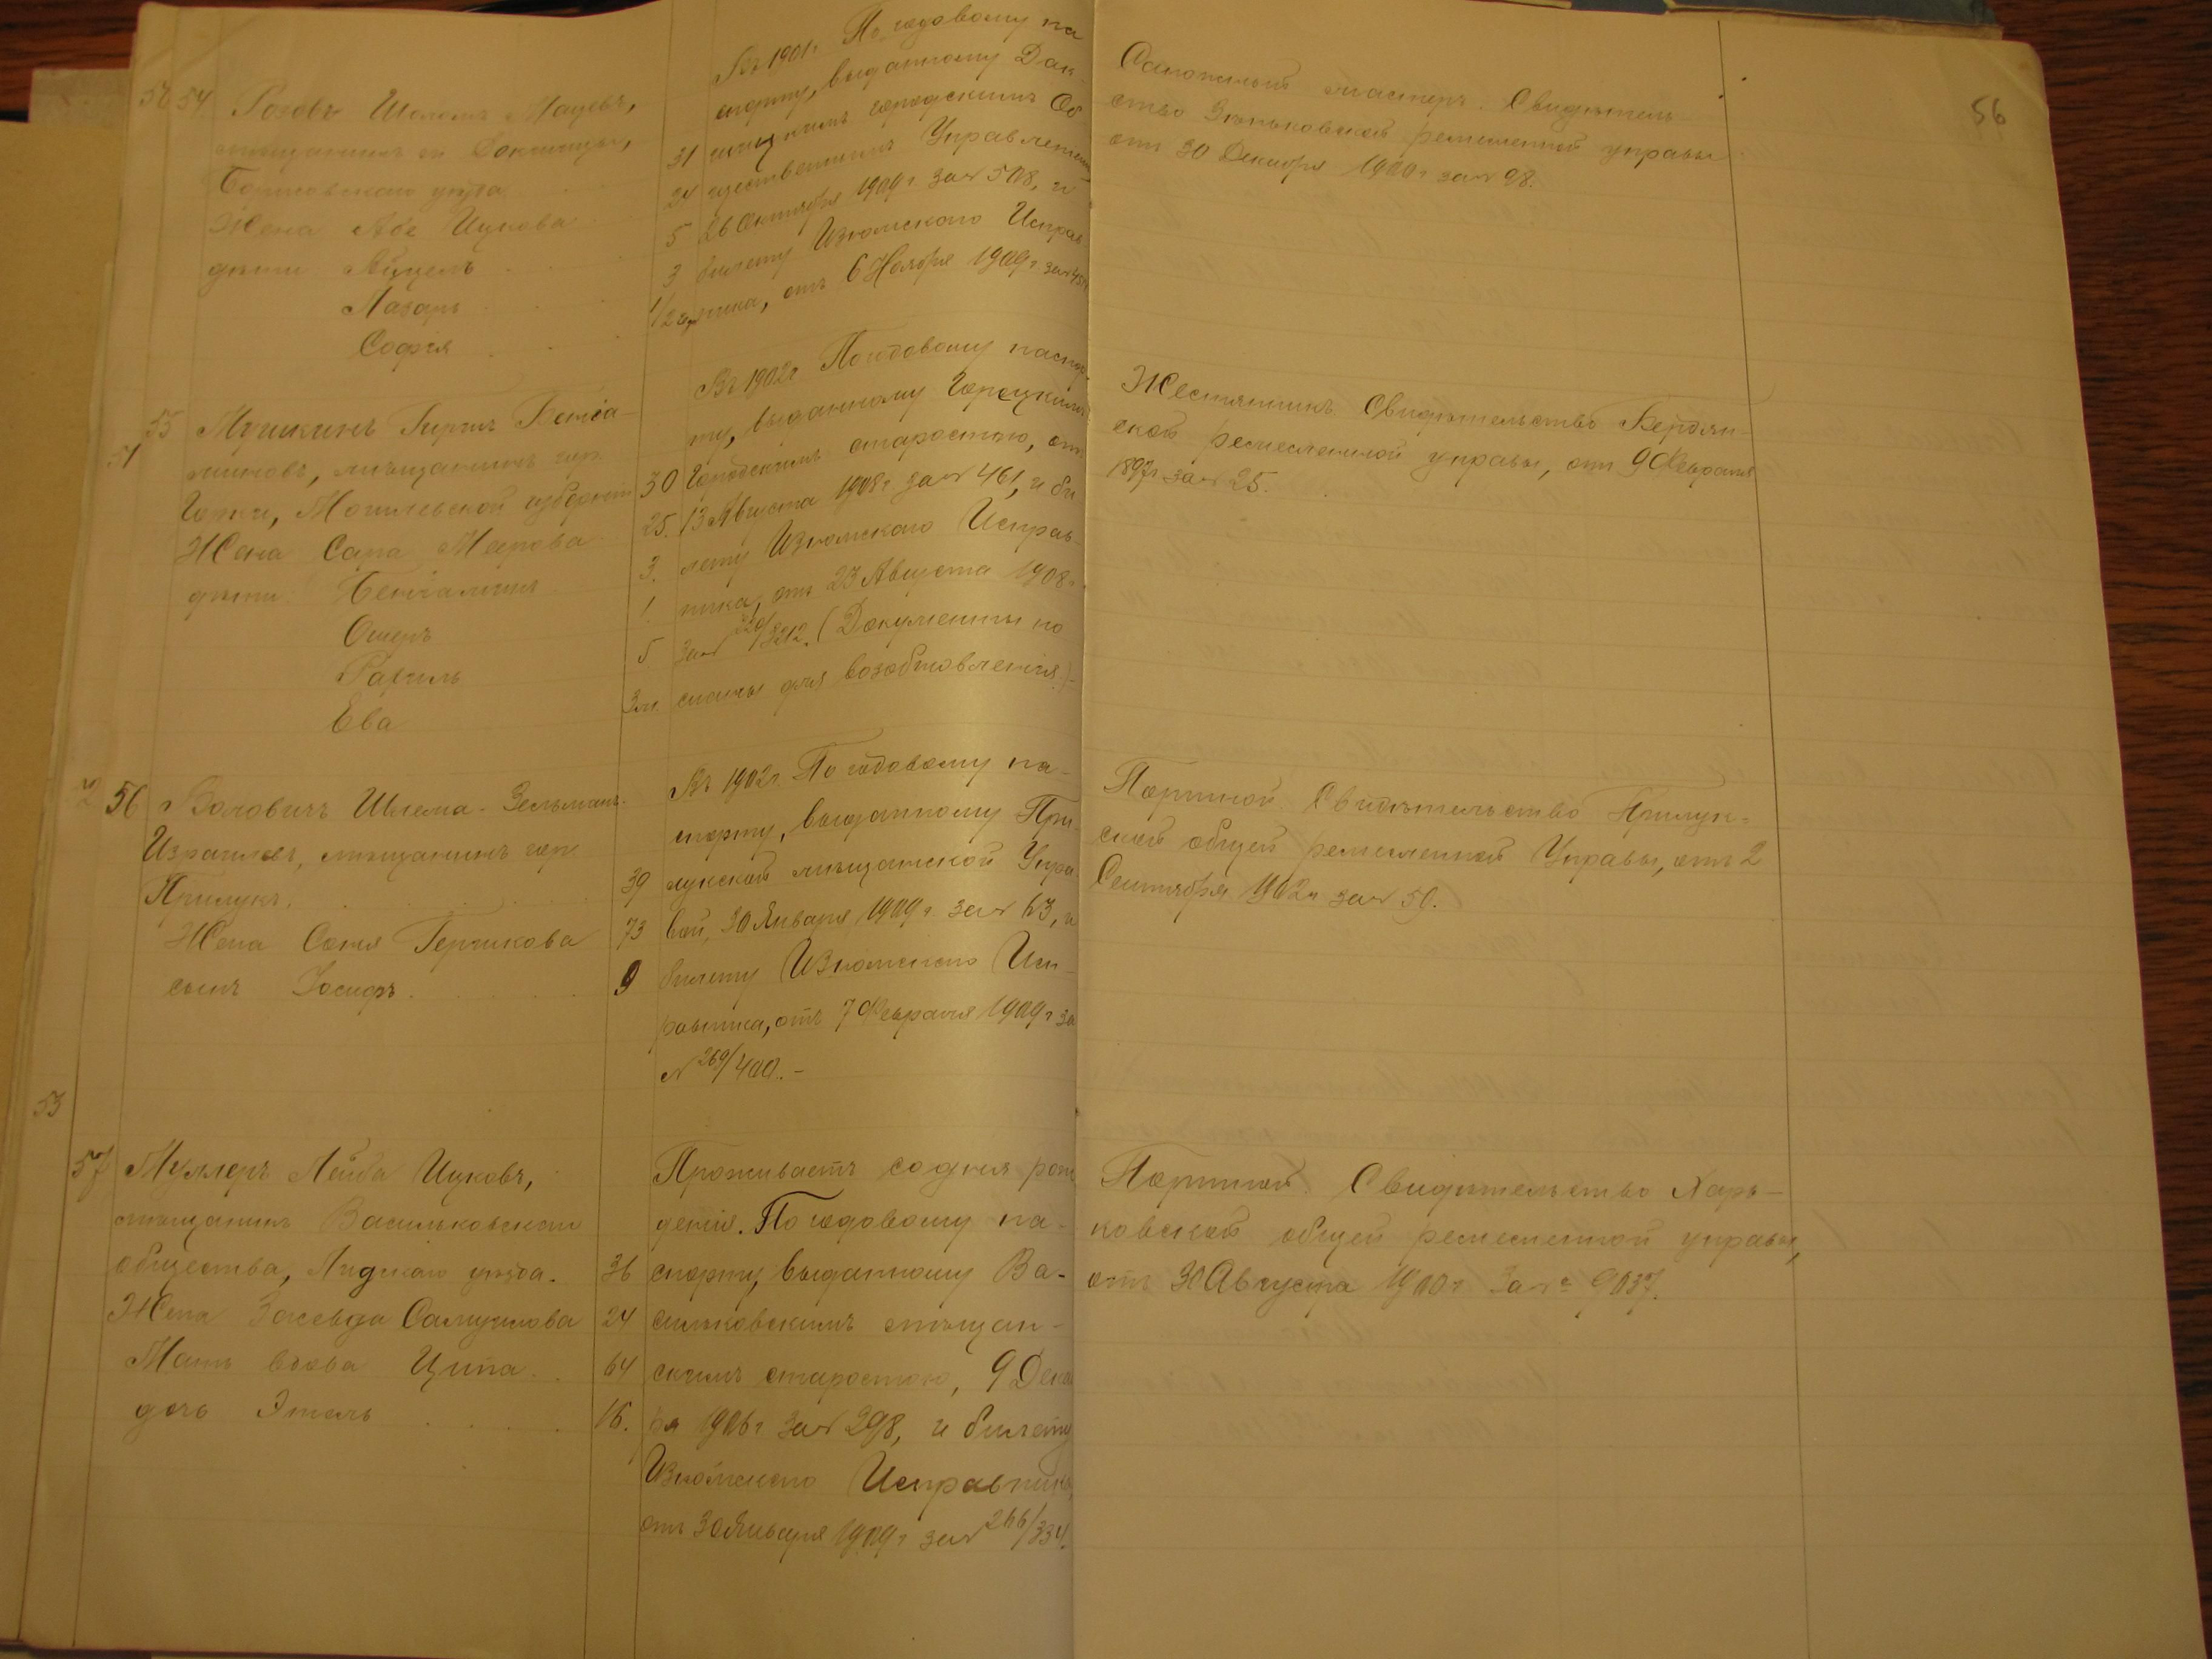 56
54 Розовъ Шоломъ
мѣщанинъ м. Докшицы,
Борисовскаго уѣзда
Жена Ицкова
дѣти
Лазарь
Софія
31
24
5
3
1/2
Въ 1901г. По годовому па
спорту, выданному Док
шицкимъ городскимъ Об
щественнымъ Управленіемъ
26 Октября 1909г. за № 508, и
билету Изюмскаго Исправ
ника, отъ 6 Ноября 1909г. за №
Сапожный мастеръ. Свидѣтель
ство Зѣньковской ремесленной управы
отъ 30 Декабря 1900г. за № 98.
55 Мушкинъ Гиршъ Беніа-
миновъ, мѣщанинъ гор.
Горки, Могилевской губерніи
Жена Сара Меерова
дѣти Беніаминъ
Ошеръ
Рахиль
Ева
30
25.
3.
1.
5
3 м.
Въ 1902г. По годовому паспор
ту, выданному Горецкимъ
Городскимъ старостою, отъ
13 Августа 1908г. за № 461, и би
лету Изюмскаго Исправ
ника, отъ 23 Августа 1908г.
за № (Документы по
сланы для возобновленія).-
Жестянникъ. Свидѣтельство Бердян-
ской ремесленной управы, отъ 9 Февраля
1897г. за № 25.
56 Воловичъ Шлема-Зельманъ
Израилевъ, мѣщанинъ гор.
Прилукъ.
Жена Соня Гершкова
сынъ Іосифъ
39
73
9
Въ 1902г. По годовому па-
спорту, выданному При-
лукской мѣщанской Упра
вой, 30 Января 1909г. за № 63, и
билету Изюмскаго Исп-
равника, отъ 7 Февраля 1909г. за
№ 269/400.-
Портной. Свидѣтельство Прилук-
ской общей ремесленной Управы, отъ 2
Сентября 1902г. за № 50.
53
57 Мулляръ Лейба Ицковъ,
мѣщанинъ Васильковскаго
общества, Лидскаго уѣзда.
Жена Самуилова
Мать вдова Ципа
дочь Этель
36
24
64
16.
Проживаетъ со дня рож
денія. По годовому па-
спорту, выданному Ва-
сильковскимъ мѣщан-
скимъ старостою, 9 Декаб
ря 1906г. за № 398, и билету
Изюмскаго Исправника,
отъ 30 Января 1909г. за № 266/334.
Портной. Свидѣтельство Харь-
ковской общей ремесленной управы,
отъ 30 Августа 1900г. за № 9037.